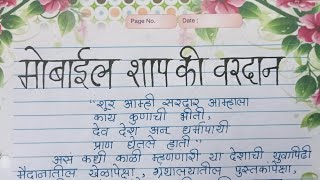 Page No.
Date :
मोबाईल शाप की वरदान
"शूर आम्ही सरदार आम्हाला
काय कुणाची भीती,
देव देश अन धर्मापायी
प्राण घेतलं हाती"
असं कधी काळी म्हणणारी या देशाची युवापिढी
मैदानातील खेळापेक्षा, ग्रंथालयातील पुस्तकापेक्षा,